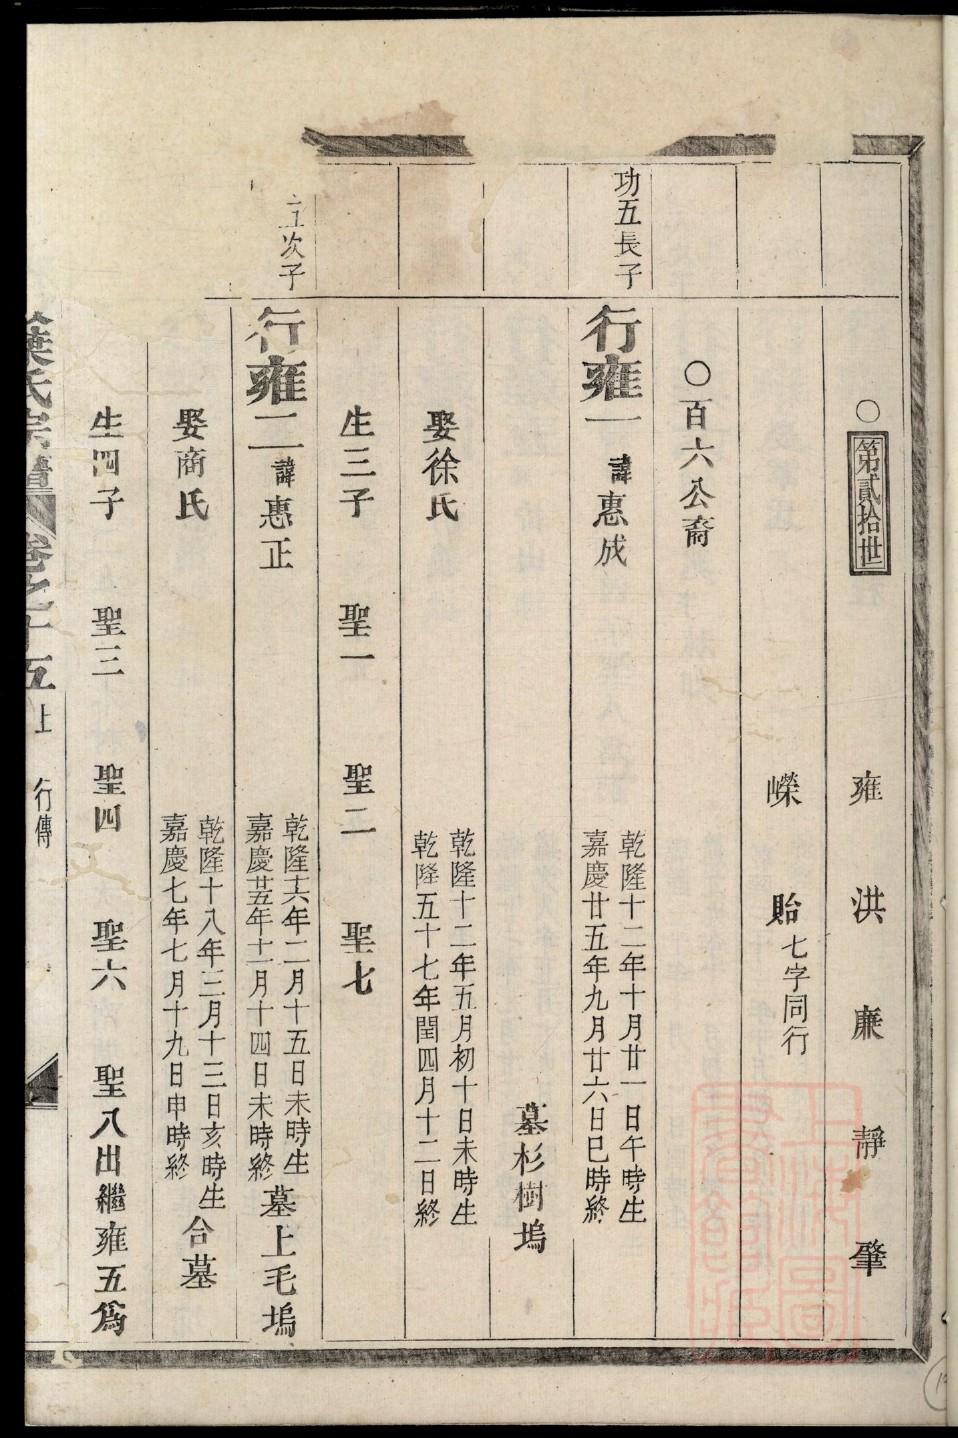 ○第貳拾世　雍　洪　廉　靜　肇
嶸　貽　七字同行
○百六公裔
功五長子
行雍一　諱惠成
乾隆十二年十月廿一日午時生
嘉慶廿五年九月廿六日巳時終
墓杉樹塢
娶徐氏
乾隆十二年五月初十日未時生
乾隆五十七年閏四月十二日終
生三子　聖一　聖二　聖七
五次子
行雍二　諱惠正
乾隆十六年二月十五日未時生
嘉慶廿五年十一月十四日未時終
墓上毛塢
娶商氏
乾隆十八年三月十三日亥時生
嘉慶七年七月十九日申時終
合墓
生四子　聖三　聖四　聖六　聖八出繼雍五爲
葉氏宗譜　卷之十五上　行傳
上海圖書館藏